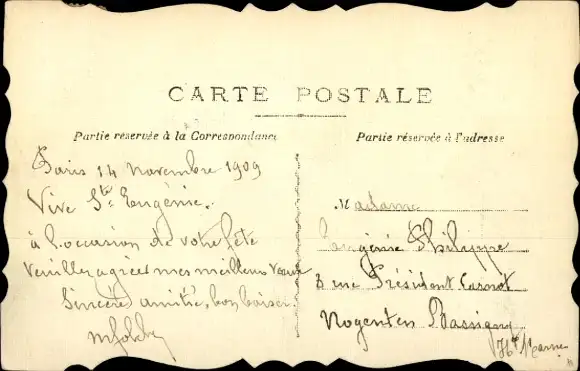 CARTE POSTALE
Partie réservée à la Correspondance
Paris 14 Novembre 1909
Vive Ste Eugénie.
à l'occasion de votre fête
Veuillez agréer mes meilleurs vœux
Sincère amitié, bon baiser
Partie réservée à l'adresse
Madame
Eugénie Philippe
rue Président Carnot
Nogent en Bassigny
Hte Marne